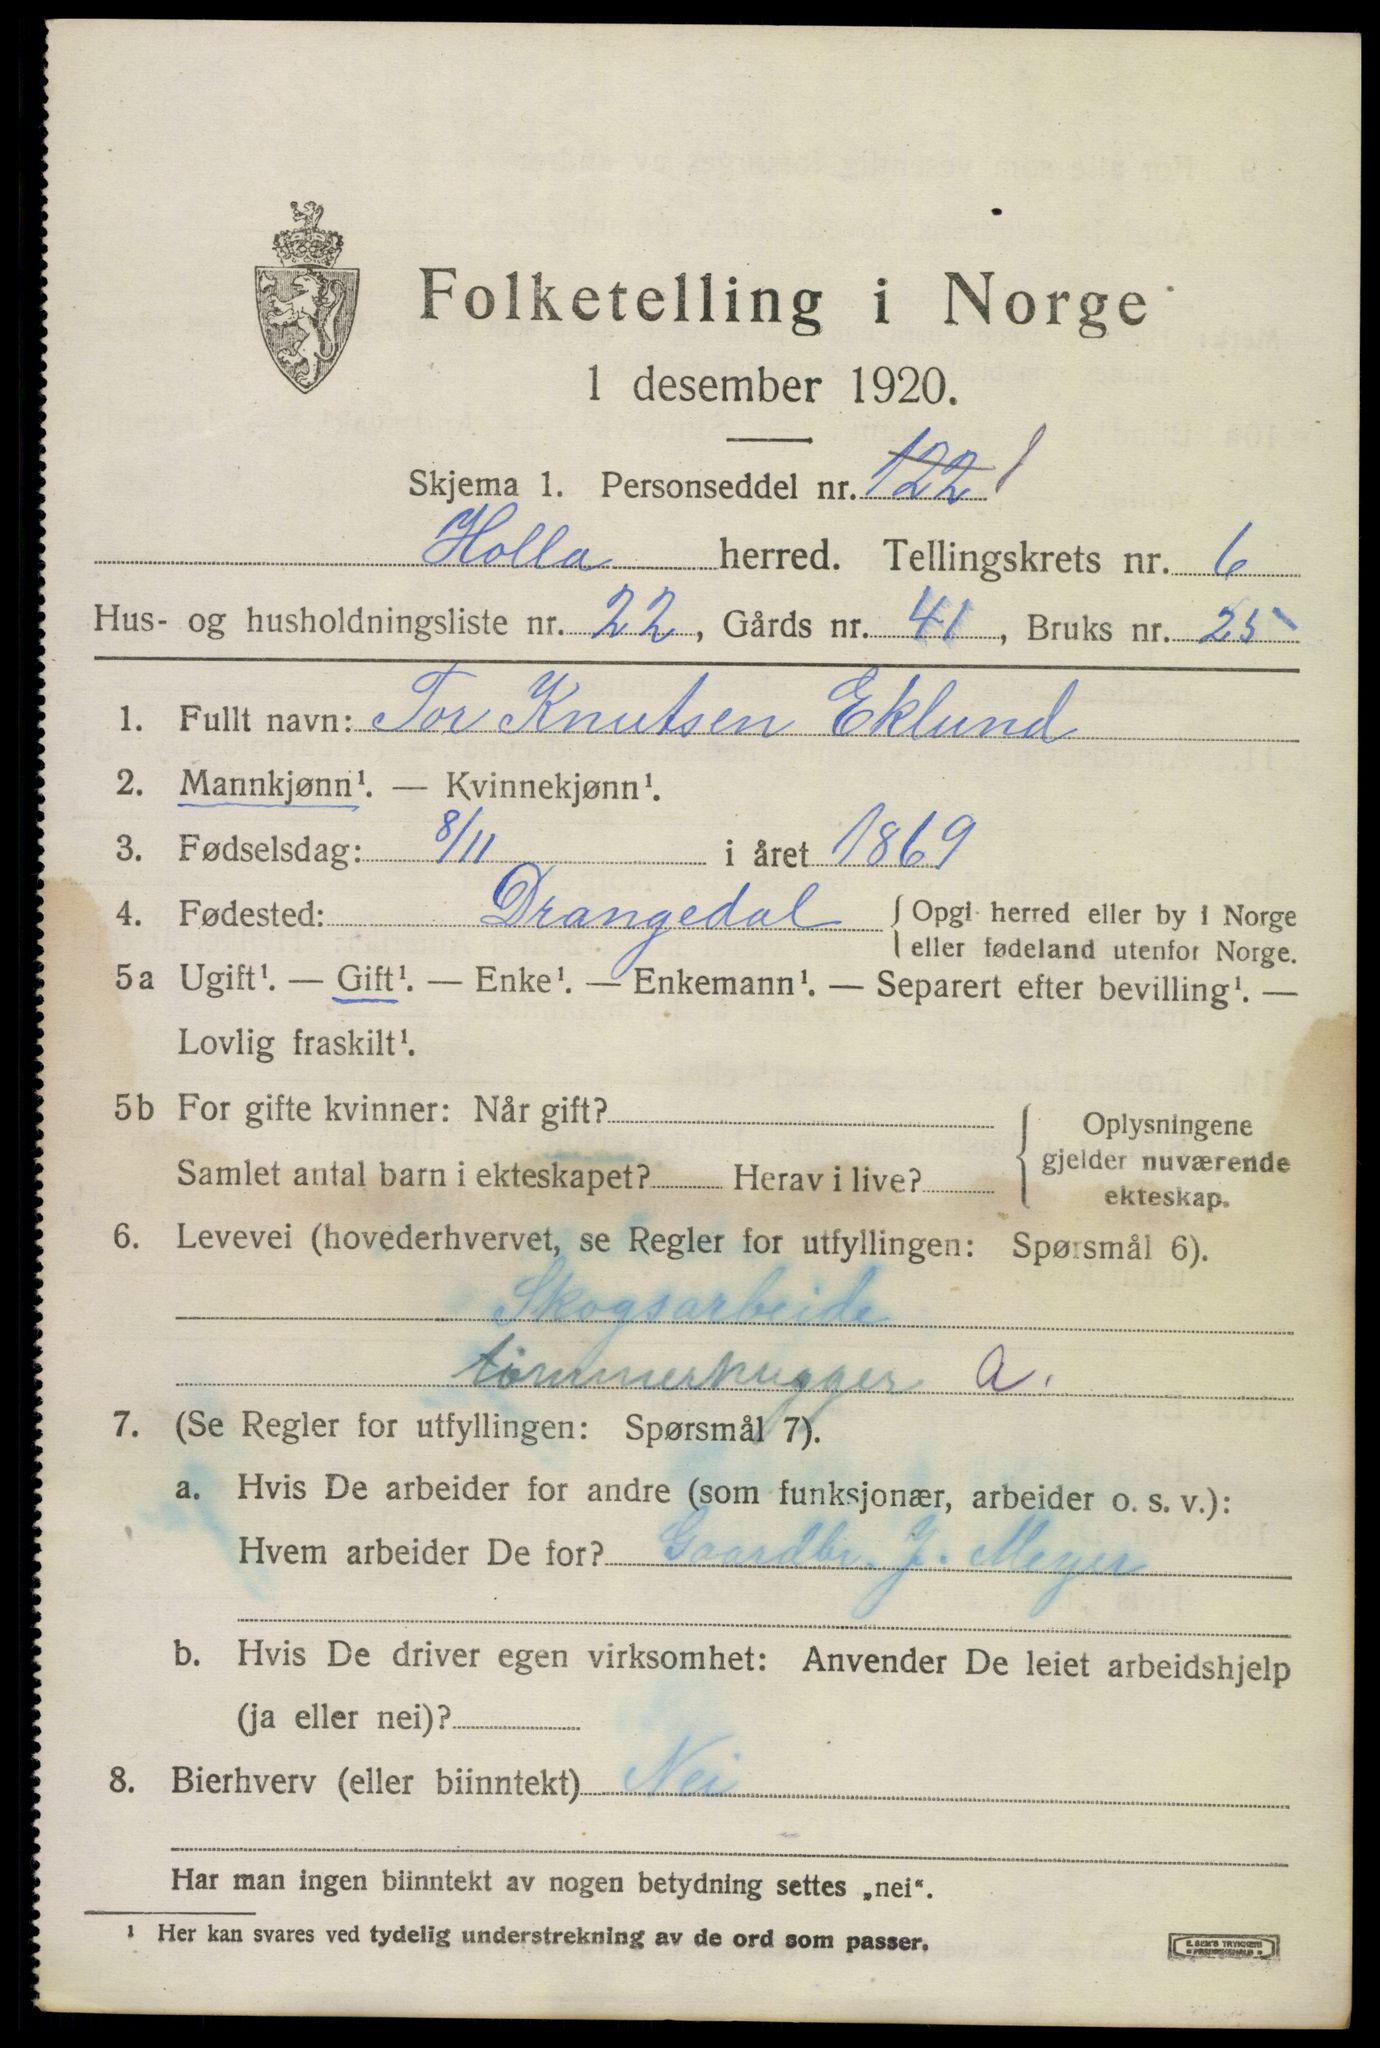 Folketelling i Norge
1 desember 1920.
Skjema 1. Personseddel nr. 122 1
Holla herred. Tellingskrets nr. 6
Hus- og husholdningsliste nr. 22, Gårds nr. 41, Bruks nr. 25
1. Fullt navn: Tor Knutsen Eklund
2. Mannkjønn¹. — Kvinnekjønn¹.
3. Fødselsdag: 8/11 i året 1869
4. Fødested: Drangedal { Opgi herred eller by i Norge
eller fødeland utenfor Norge.
5a Ugift¹. — Gift¹. — Enke¹. — Enkemann¹. — Separert efter bevilling¹. —
Lovlig fraskilt¹.
5b For gifte kvinner: Når gift?
Samlet antal barn i ekteskapet? Herav i live?
{ Oplysningene
gjelder nuværende
ekteskap.
6. Levevei (hovederhvervet, se Regler for utfyllingen: Spørsmål 6).
Skogsarbeide
tømmerhugger a.
7. (Se Regler for utfyllingen: Spørsmål 7).
a. Hvis De arbeider for andre (som funksjonær, arbeider o. s. v.):
Hvem arbeider De for? Gaardbr. J. Meyer
b. Hvis De driver egen virksomhet: Anvender De leiet arbeidshjelp
(ja eller nei)?
8. Bierhverv (eller biinntekt) Nei
Har man ingen biinntekt av nogen betydning settes „nei“.
¹ Her kan svares ved tydelig understrekning av de ord som passer.
E. SEM'S TRYKKERI
FREDRIKSHALD